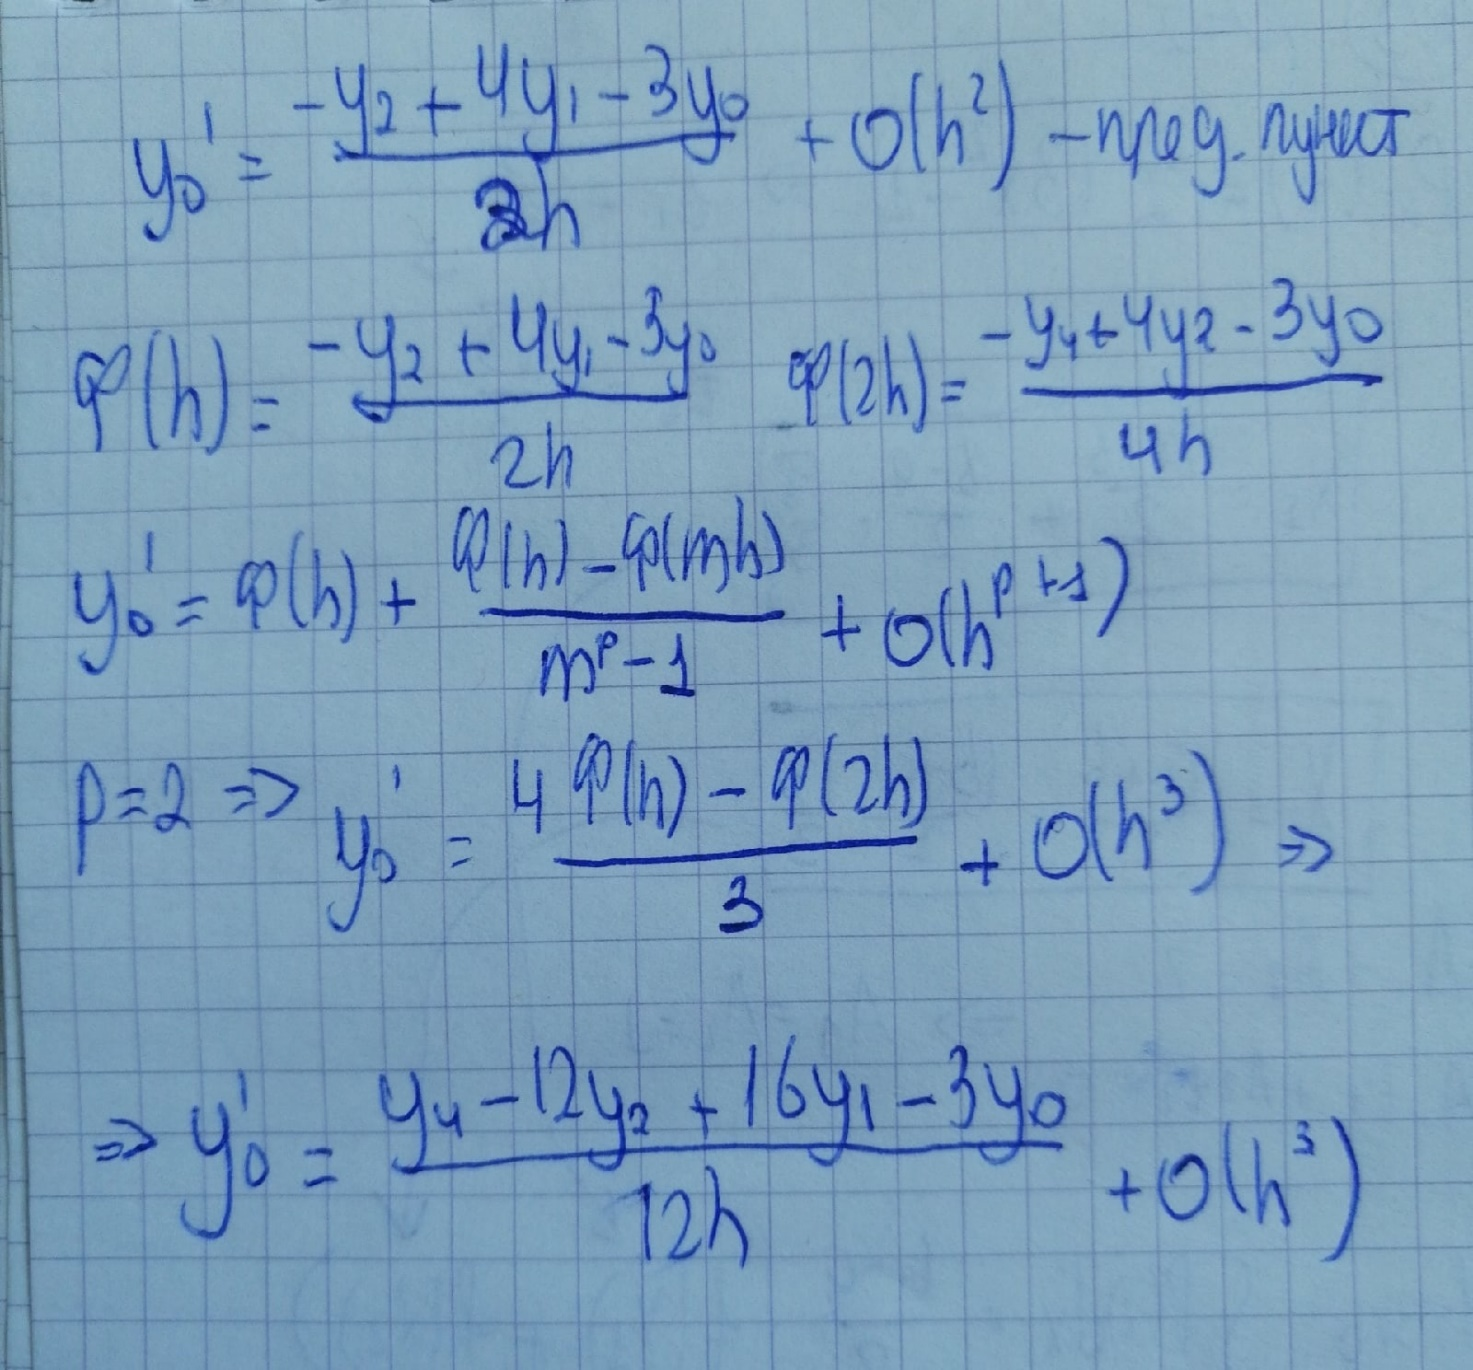 y₀' = (-y₂ + 4y₁ - 3y₀)/(2h) + O(h²) - пред. пункт
φ(h) = (-y₂ + 4y₁ - 3y₀)/(2h) φ(2h) = (-y₄ + 4y₂ - 3y₀)/(4h)
y₀' = φ(h) + (φ(h) - φ(mh))/(mᵖ - 1) + O(hᵖ⁺¹)
p = 2 => y₀' = (4φ(h) - φ(2h))/3 + O(h³) =>
=> y₀' = (y₄ - 12y₂ + 16y₁ - 3y₀)/(12h) + O(h³)